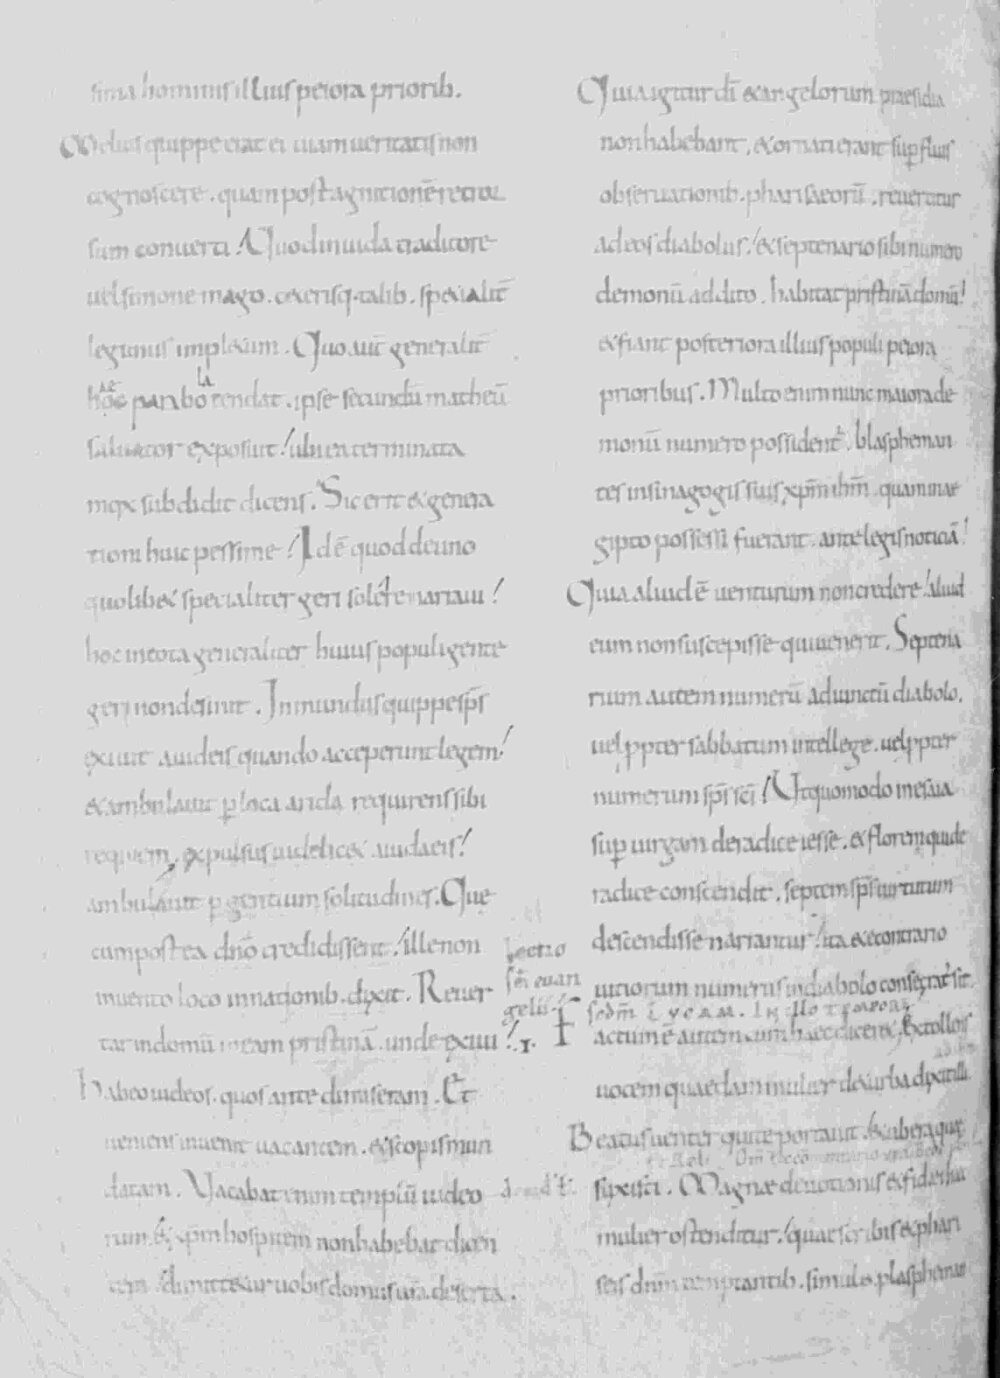 sima hominis illius peiora priorib.
Melius quippe erat ei uiam ueritatis non
cognoscere . quam post agnitionē retror
sum conuerti ! Quod in iuda traditore
uel simone mago . ceterisq. talib. specialit̄
legimus impletum . Quo aut̄ generalit̄
hęc parabola tendat . ipse secundū matheū
saluator exposuit ! ubi ea terminata
mox subdidit dicens . Sic erit & genera
tioni huic pessime ! Id ē quod de uno
quolib& specialiter geri solere narraui !
hoc in tota generaliter huius populi gente
geri non desinit . Inmundus quippe sp̄s
exiuit a iudeis quando acceperunt legem !
& ambulauit ꝑ loca arida requirens sibi
requiem . expulsus uidelic& a iudaeis !
ambulauit ꝑ gentium solitudines . Quę
cum postea dn̄o credidissent ! ille non
inuento loco in nationib. dixit . Reuer
tar in domū meam pristinā . unde exiui !
Habeo iudeos . quos ante dimiseram . Et
ueniens inuenit uacantem . & scopis mun
datam . Vacabat enim templū iudeo
rum . & xp̄m hospitem non habebat dicen
tem . dimittetur uobis domus ur̄a deserta .
Quia igitur dī & angelorum praesidia
non habebant . & ornati erant suꝑfluis
obseruationib. pharisaeorū . reuertitur
ad eos diabolus ! & septenario sibi numero
demonū addito . habitat pristinā domū !
& fiant posteriora illius populi peiora
prioribus . Multo enim nunc maiora de
monū numero possident̄ . blapheman
tes in sinagogis suis xp̄m ihm̄ . quam in ae
gipto possessi fuerant . ante legis notitiā !
Quia aliud ē uenturum non credere ! aliud
eum non suscepisse qui uenerit . Septena
rium autem numerū adiunctū diabolo .
uel ꝓpter sabbatum intellege . uel ꝓpter
numerum sp̄s sc̄i ! Ut quomodo in esaia
suꝑ uirgam de radice iesse . & florem qui de
radice conscendit . septem sp̄s uirtutum
descendisse narrantur ! ita & econtrario
uitiorum numerus in diabolo consecrat̄ sit .
Lectio
sc̄i euan
gelii
scdm̄ LUCAM . IN illo tempore
Factum ē autem cum haec dicer& . Extollens
uocem quaedam mulier de turba dixit illi
Beatus uenter qui te portauit . & ubera quę
suxisti . Magnae deuotionis & fidei haec
mulier ostenditur ! quae scribis & phari
seis dn̄m temptantib. simul & plasphemantib